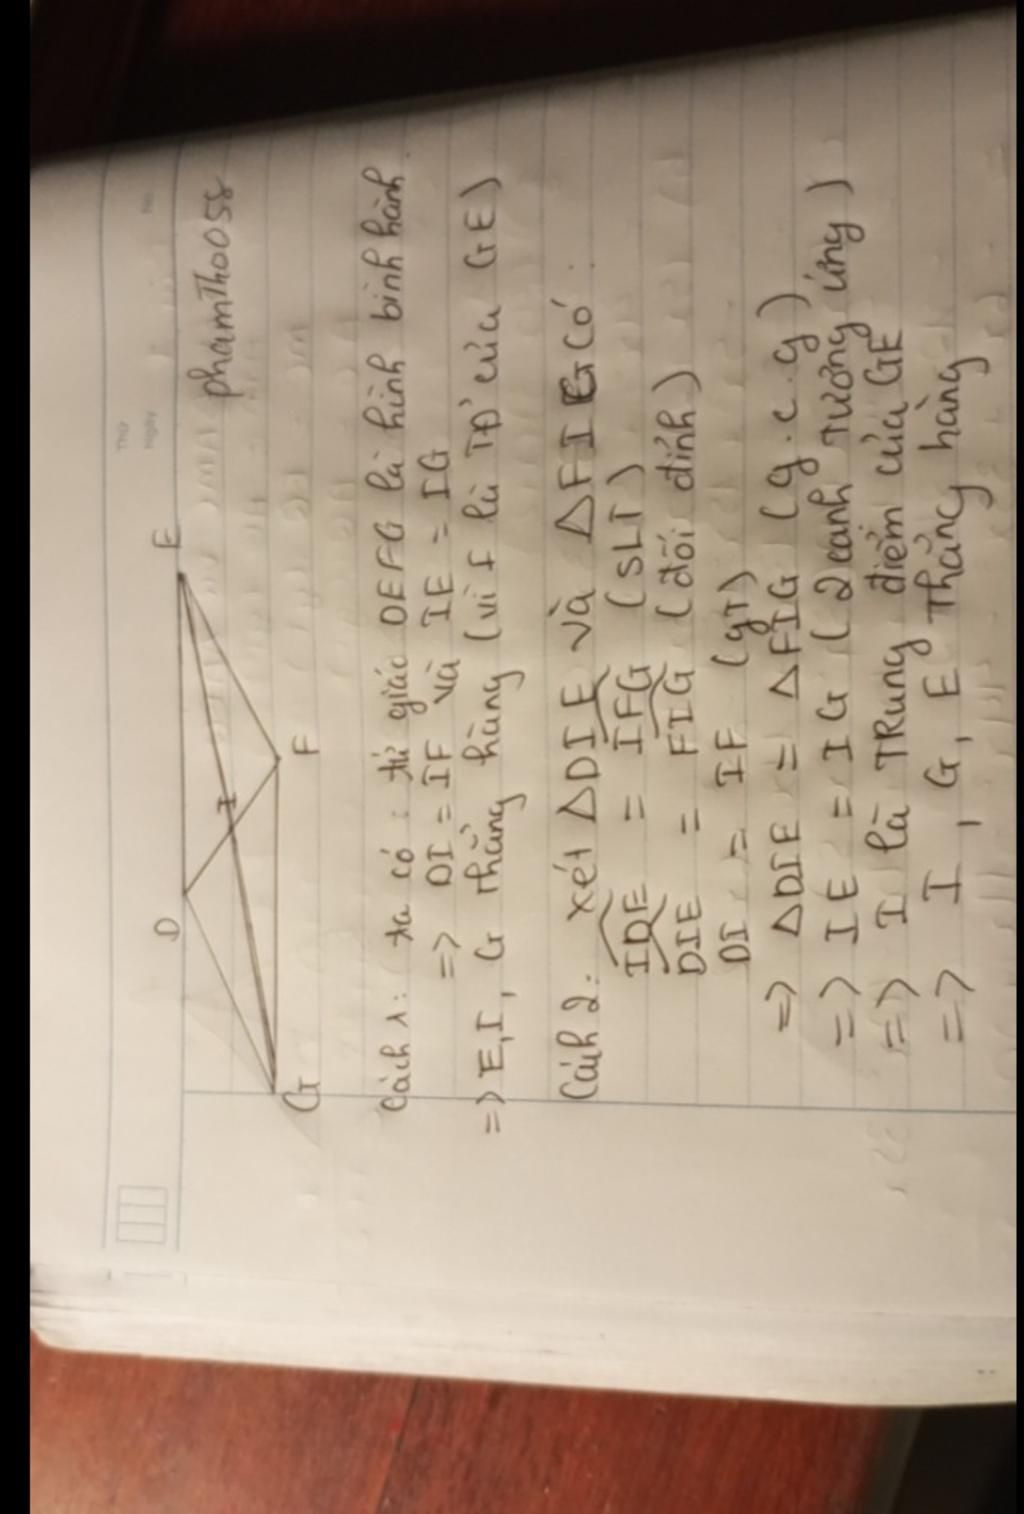 Thứ
Ngày
No.
phamtho058
D
E
I
G
F
Cách 1: ta có : tứ giác DEFG là hình bình hành
=> DI = IF và IE = IG
=> E, I, G thẳng hàng (vì I là TĐ' của GE)
Cách 2: xét ΔDIE và ΔFIG có:
IDE = IFG (SLT)
DIE = FIG (đối đỉnh)
DI = IF (gT)
=> ΔDIE = ΔFIG (g.c.g)
=> IE = IG (2 cạnh tương ứng)
=> I là TRung điểm của GE
=> I, G, E Thẳng hàng